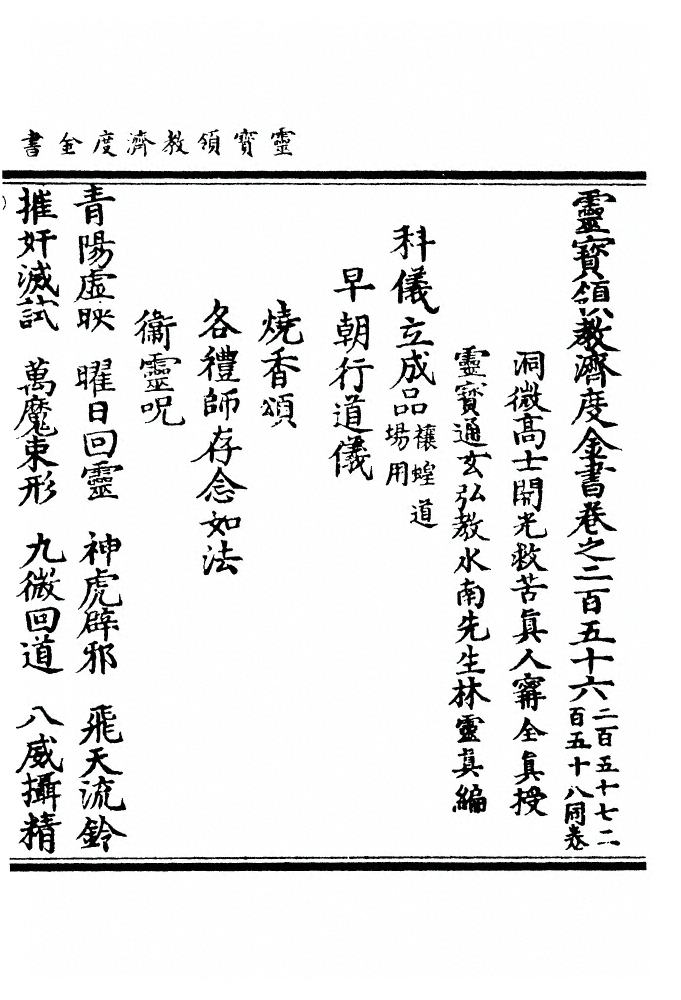 書金度濟教領寶靈
靈寶領教濟度金書卷之二百五十六二百五十七二百五十八同卷
洞微高士開光救苦眞人甯全眞授
靈寶通玄弘教水南先生林靈眞編
科儀立成品禳蝗道場用
早朝行道儀
燒香頌
各禮師存念如法
衞靈呪
青陽虛映 曜日回靈 神虎辟邪 飛天流鈴
摧奸滅試 萬魔束形 九微回道 八威攝精